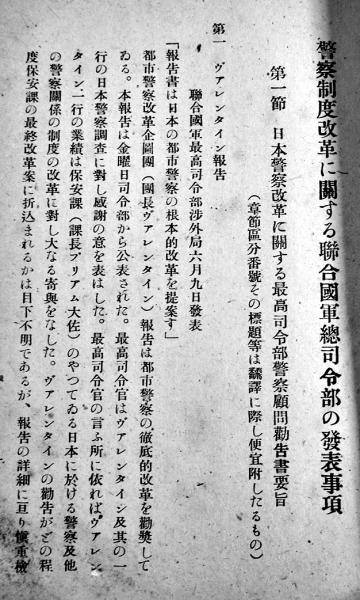 警察制度改革に關する聯合國軍總司令部の發表事項
第一節　日本警察改革に關する最高司令部警察顧問勸告書要旨
（章節區分番號その標題等は飜譯に際し便宜附したるもの）
第一　ヴアレンタイン報告
聯合國軍最高司令部涉外局六月九日發表
「報告書は日本の都市警察の根本的改革を提案す」
都市警察改革企圖團（團長ヴアレンタイン）報告は都市警察の徹底的改革を勸奬して
ゐる。本報告は金曜日司令部から公表された。最高司令官はヴアレンタイン及其の一
行の日本警察調査に對し感謝の意を表はした。最高司令官の言ふ所に依ればヴアレン
タイン一行の業績は保安課（課長プリアム大佐）のやつてゐる日本に於ける警察及他
の警察關係の制度の改革に對し大なる寄與をなした。ヴアレンタインの勸告がどの程
度保安課の最終改革案に折込まれるかは目下不明であるが、報告の詳細に亘り愼重檢